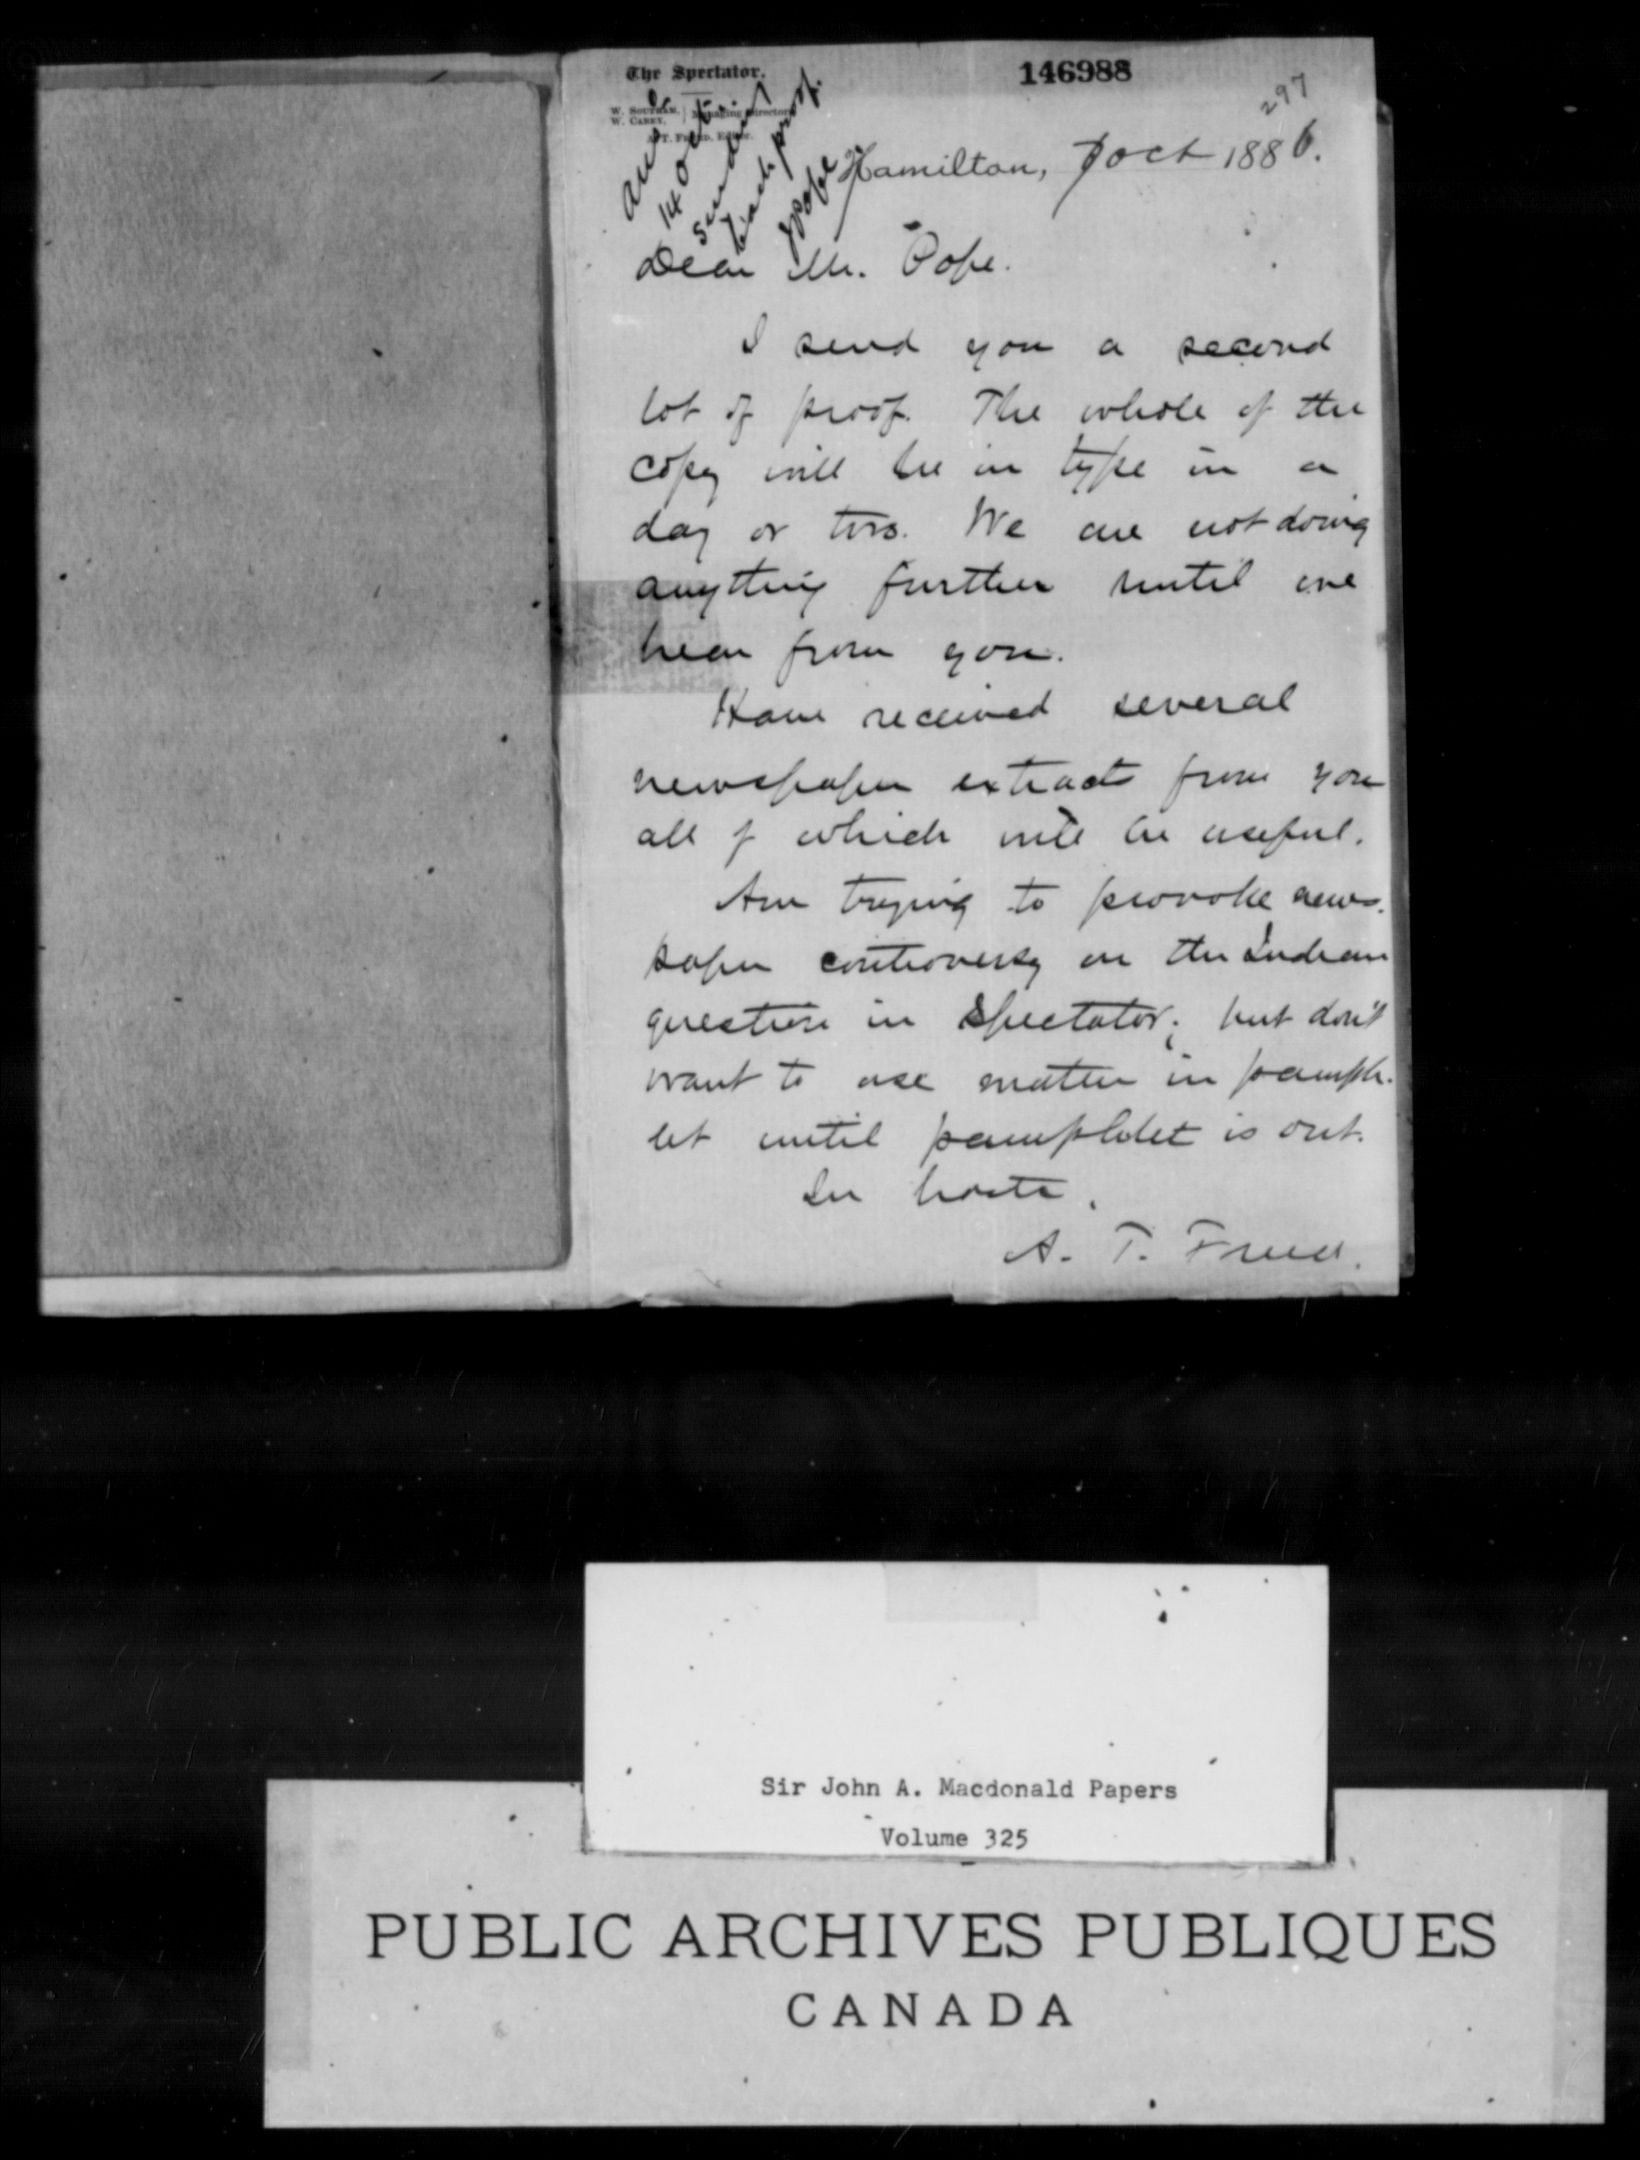 The Spectator.
146988
297
W. SOUTHAM, } Managing Directors
W. CAREY,
A. T. FREED, Editor.
Ansd
14 Oct
sending
back proof.
J Pope
Hamilton, 7 Oct 1886.
Dear Mr. Pope.
I send you a second
lot of proof. The whole of the
copy will be in type in a
day or two. We are not doing
anything further until we
hear from you.
Have received several
newspaper extracts from you
all of which will be useful.
Am trying to provoke news-
paper controversy on the Indian
question in Spectator; but don't
want to use matter in pamph-
let until pamphlet is out.
In haste,
A. T. Freed.
Sir John A. Macdonald Papers
Volume 325
PUBLIC ARCHIVES PUBLIQUES
CANADA